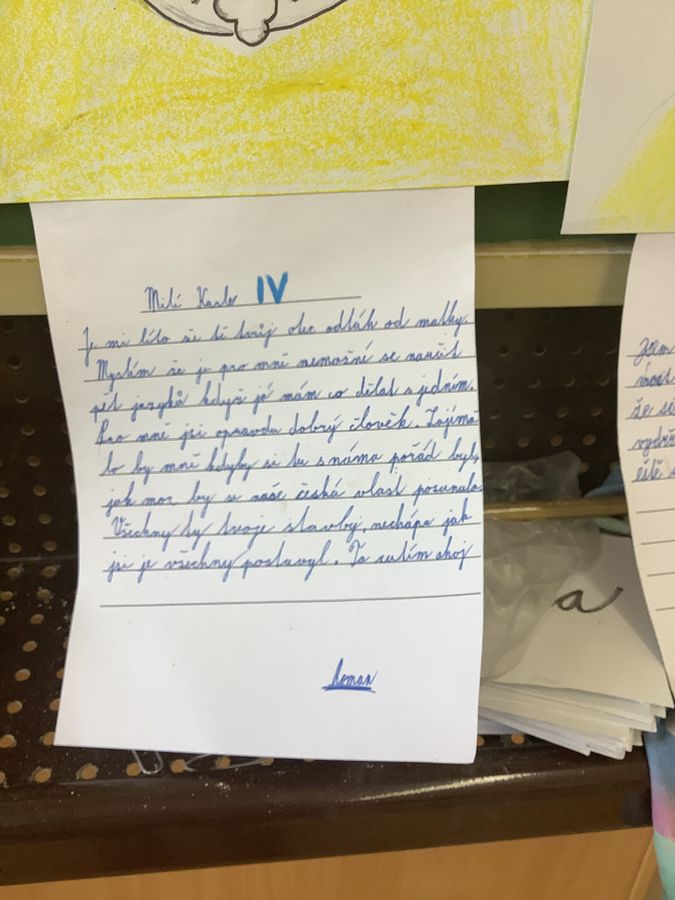 Milí Karle IV
Je mi líto že tě tvůj otec odtáh od matky.
Myslím že je pro mně nemožní se naučit
pět jazyků když já mám co dělat s jedním.
Pro mně jsi opravdu dobrý člověk. Zajíma
lo by mně kdyby si tu snáma pořád byl,
jak moc by se naše česká vlast posunula.
Všechny ty tvoje stavby, nechápu jak
jsi je všechny postavyl. Ta zatím ahoj
Roman
Jsem
most
že se
vydrž
eště s
a